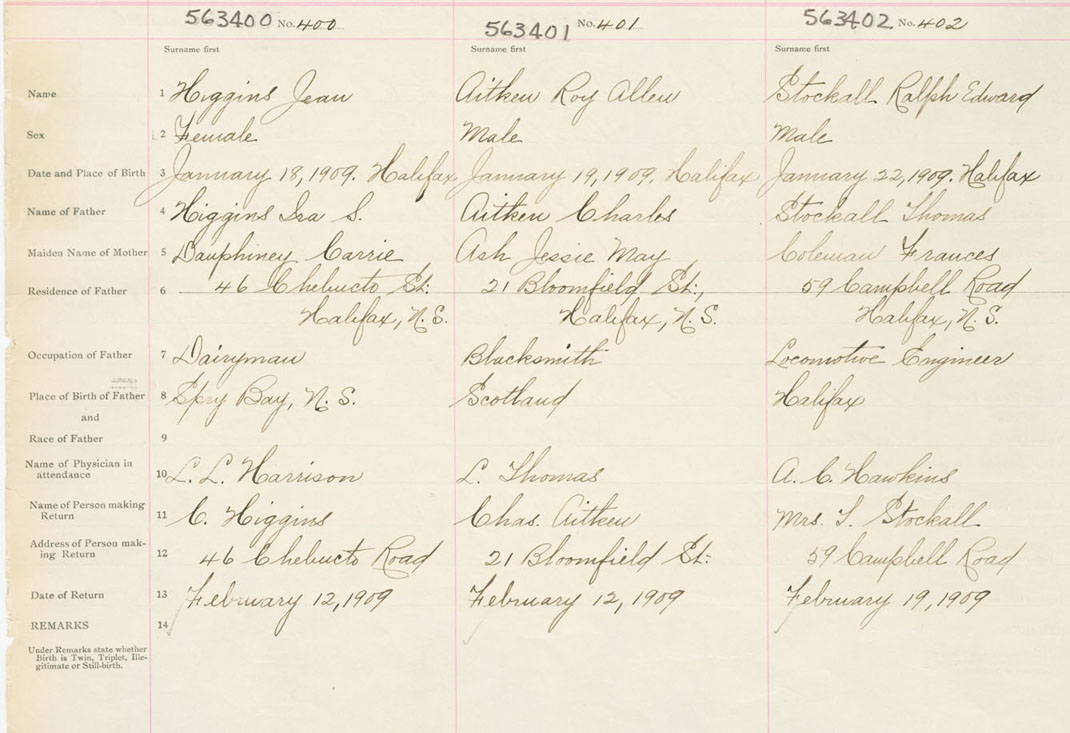 563400 No. 400 563401 No. 401 563402 No. 402
Surname first Surname first Surname first
Name 1 Higgins Jean Aitken Roy Allen Stockall Ralph Edward
Sex 2 Female Male Male
Date and Place of Birth 3 January 18, 1909. Halifax January 19, 1909. Halifax January 22, 1909. Halifax
Name of Father 4 Higgins Ira S. Aitken Charles Stockall Thomas
Maiden Name of Mother 5 Dauphiney Carrie Ash Jessie May Coleman Frances
Residence of Father 6 46 Chebucto St: 21 Bloomfield St:, 59 Campbell Road
Halifax, N.S. Halifax, N.S. Halifax, N.S.
Occupation of Father 7 Dairyman Blacksmith Locomotive Engineer
Place of Birth of Father 8 Spry Bay, N.S. Scotland Halifax
and
Race of Father 9
Name of Physician in
attendance 10 L. L. Harrison L. Thomas A. C. Hawkins
Name of Person making
Return 11 C. Higgins Chas. Aitken Mrs. T. Stockall
Address of Person mak-
ing Return 12 46 Chebucto Road 21 Bloomfield St: 59 Campbell Road
Date of Return 13 February 12, 1909 February 12, 1909 February 19, 1909
REMARKS 14
Under Remarks state whether
Birth is Twin, Triplet, Ille-
gitimate or Still-birth.